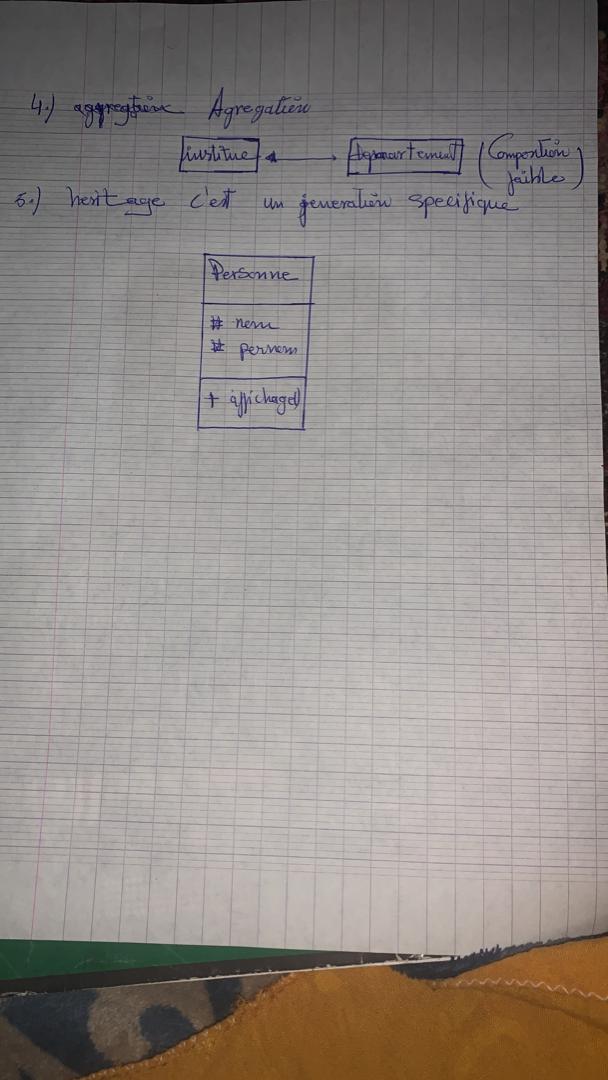 4.) Agregation
institue departement (Composition
faible)
5.) heritage c'est un generation specifique
Personne
# nom
# pernom
+ affichage()